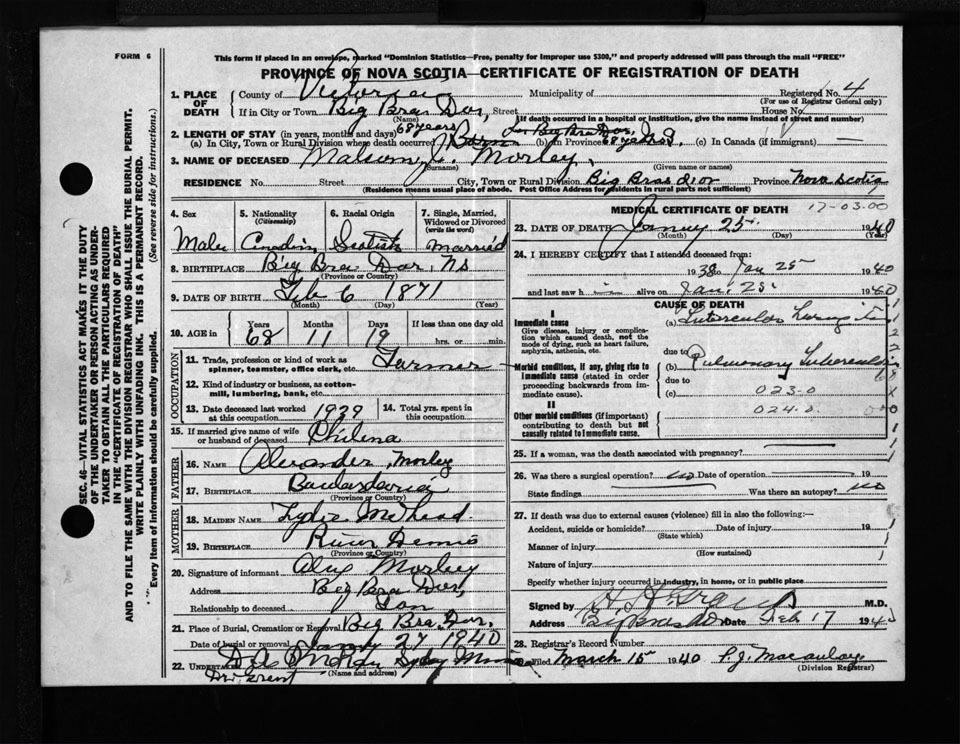 FORM 6
This form if placed in an envelope, marked "Dominion Statistics—Free, penalty for improper use $300," and property addressed will pass through the mail "FREE"
PROVINCE OF NOVA SCOTIA—CERTIFICATE OF REGISTRATION OF DEATH
SEC. 46—VITAL STATISTICS ACT MAKES IT THE DUTY
OF THE UNDERTAKER OR PERSON ACTING AS UNDER-
TAKER TO OBTAIN ALL THE PARTICULARS REQUIRED
IN THE "CERTIFICATE OF REGISTRATION OF DEATH"
AND TO FILE THE SAME WITH THE DIVISION REGISTRAR WHO SHALL ISSUE THE BURIAL PERMIT.
WRITE PLAINLY WITH UNFADING INK. THIS IS A PERMANENT RECORD.
Every item of information should be carefully supplied. (See reverse side for instructions.)
1. PLACE OF DEATH County of Victoria Municipality of Registered No. 4
(For use of Registrar General only)
If in City or Town Big Bras Dor, Street House No.
(Name) (If death occurred in a hospital or institution, give the name instead of street and number)
2. LENGTH OF STAY (in years, months and days) 68 years Big Bras Dor,
(a) In City, Town or Rural Division where death occurred Born (b) in Province 68 years (c) In Canada (if immigrant) —
3. NAME OF DECEASED Morley.
(Surname) (Given name or names)
RESIDENCE No. Street City, Town or Rural Division Big Bras d'or Province Nova Scotia
(Residence means usual place of abode. Post Office Address for residents in rural parts not sufficient)
4. Sex Male
5. Nationality (Citizenship) Canadian
6. Racial Origin Scotish
7. Single, Married, Widowed or Divorced (write the word) Married
8. BIRTHPLACE Big Bra Dor, NS
(Province or Country)
9. DATE OF BIRTH Feb 6 1871
(Month) (Day) (Year)
10. AGE in Years 68 Months 11 Days 19 If less than one day old hrs. or min.
OCCUPATION
11. Trade, profession or kind of work as spinner, teamster, office clerk, etc. Farmer
12. Kind of industry or business, as cotton-mill, lumbering, bank, etc.
13. Date deceased last worked at this occupation 1939 14. Total yrs. spent in this occupation.
15. If married give name of wife or husband of deceased Philena
FATHER
16. NAME Alexander Morley
17. BIRTHPLACE
(Province or Country)
MOTHER
18. MAIDEN NAME Lydia
19. BIRTHPLACE River Dennis
(Province or Country)
20. Signature of informant Alex Morley
Address Big Bra Dor,
Relationship to deceased Son
21. Place of Burial, Cremation or Removal Big Bra Dor,
Date of burial or removal Jany 27 1940
22. Undertaker Sydney Mines
(Name and address)
MEDICAL CERTIFICATE OF DEATH 17-03.00
23. DATE OF DEATH January 25 1940
(Month) (Day) (Year)
24. I HEREBY CERTIFY that I attended deceased from:
1938 Jan 25 1940
and last saw h im alive on Jan. 25 1940
CAUSE OF DEATH
I
Immediate cause
Give disease, injury or complication which caused death, not the mode of dying, such as heart failure, asphyxia, asthenia, etc.
(a) Tuberculos Laryngitis
due to
Morbid conditions, if any, giving rise to immediate cause (stated in order proceeding backwards from immediate cause).
(b) Pulmonary Tuberculosis
due to
(c) 023-0
II
Other morbid conditions (if important) contributing to death but not causally related to immediate cause.
024-0
25. If a woman, was the death associated with pregnancy?
26. Was there a surgical operation? no Date of operation — 19
State findings Was there an autopsy? no
27. If death was due to external causes (violence) fill in also the following:—
Accident, suicide or homicide? Date of injury 19
(State which)
Manner of injury
(How sustained)
Nature of injury
Specify whether injury occurred in industry, in home, or in public place
Signed by M.D.
Address Big Bras d'Or Date Feb 17 1940
28. Registrar's Record Number
Filed March 15 1940 P.J. Macaulay
(Division Registrar)